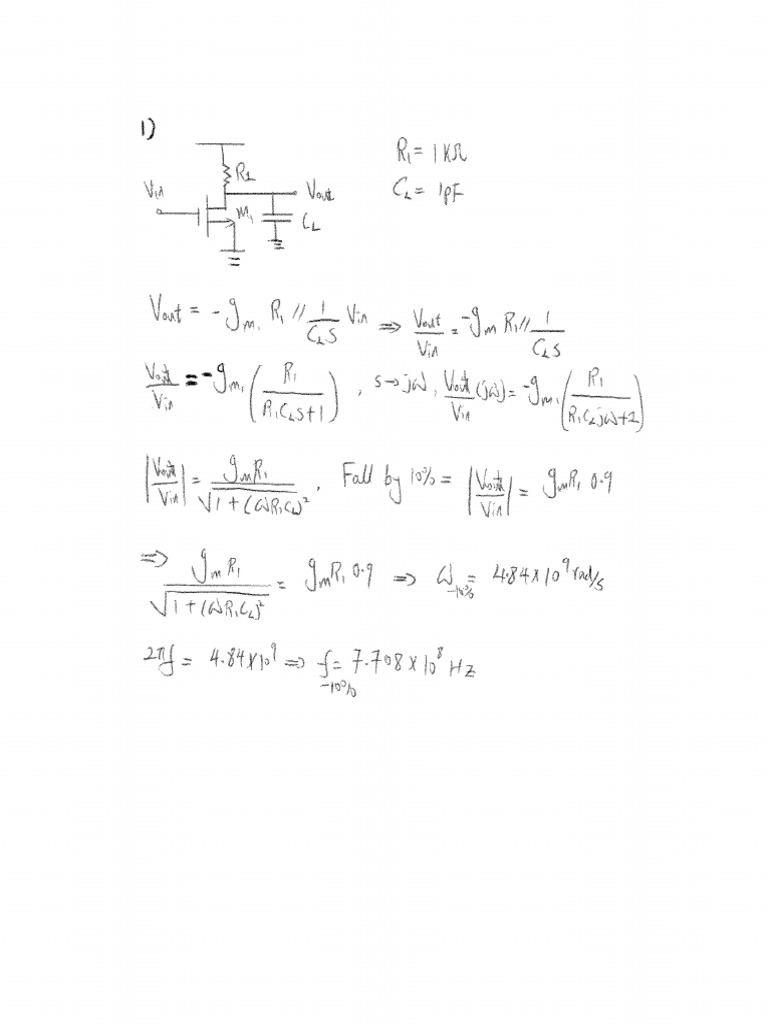 1)
R₁ = 1 KΩ
C_L = 1pF
R1
Vin
Vout
M₁
C_L
Vout = -gm₁ R₁ // 1/(C_L S) Vin ⇒ Vout/Vin = -gm R₁ // 1/(C_L S)
Vout/Vin = -gm₁ (R₁/(R₁C_LS+1)) , s→jω , Vout/Vin (jω) = -gm₁ (R₁/(R₁C_Ljω+2))
|Vout/Vin| = gmR₁/√(1+(ωR₁C_L)²) , Fall by 10% = |Vout/Vin| = gmR₁ 0.9
⇒ gmR₁/√(1+(ωR₁C_L)²) = gmR₁ 0.9 ⇒ ω₋₁₀% = 4.84×10⁹ rad/s
2πf = 4.84×10⁹ ⇒ f₋₁₀% = 7.708×10⁸ Hz